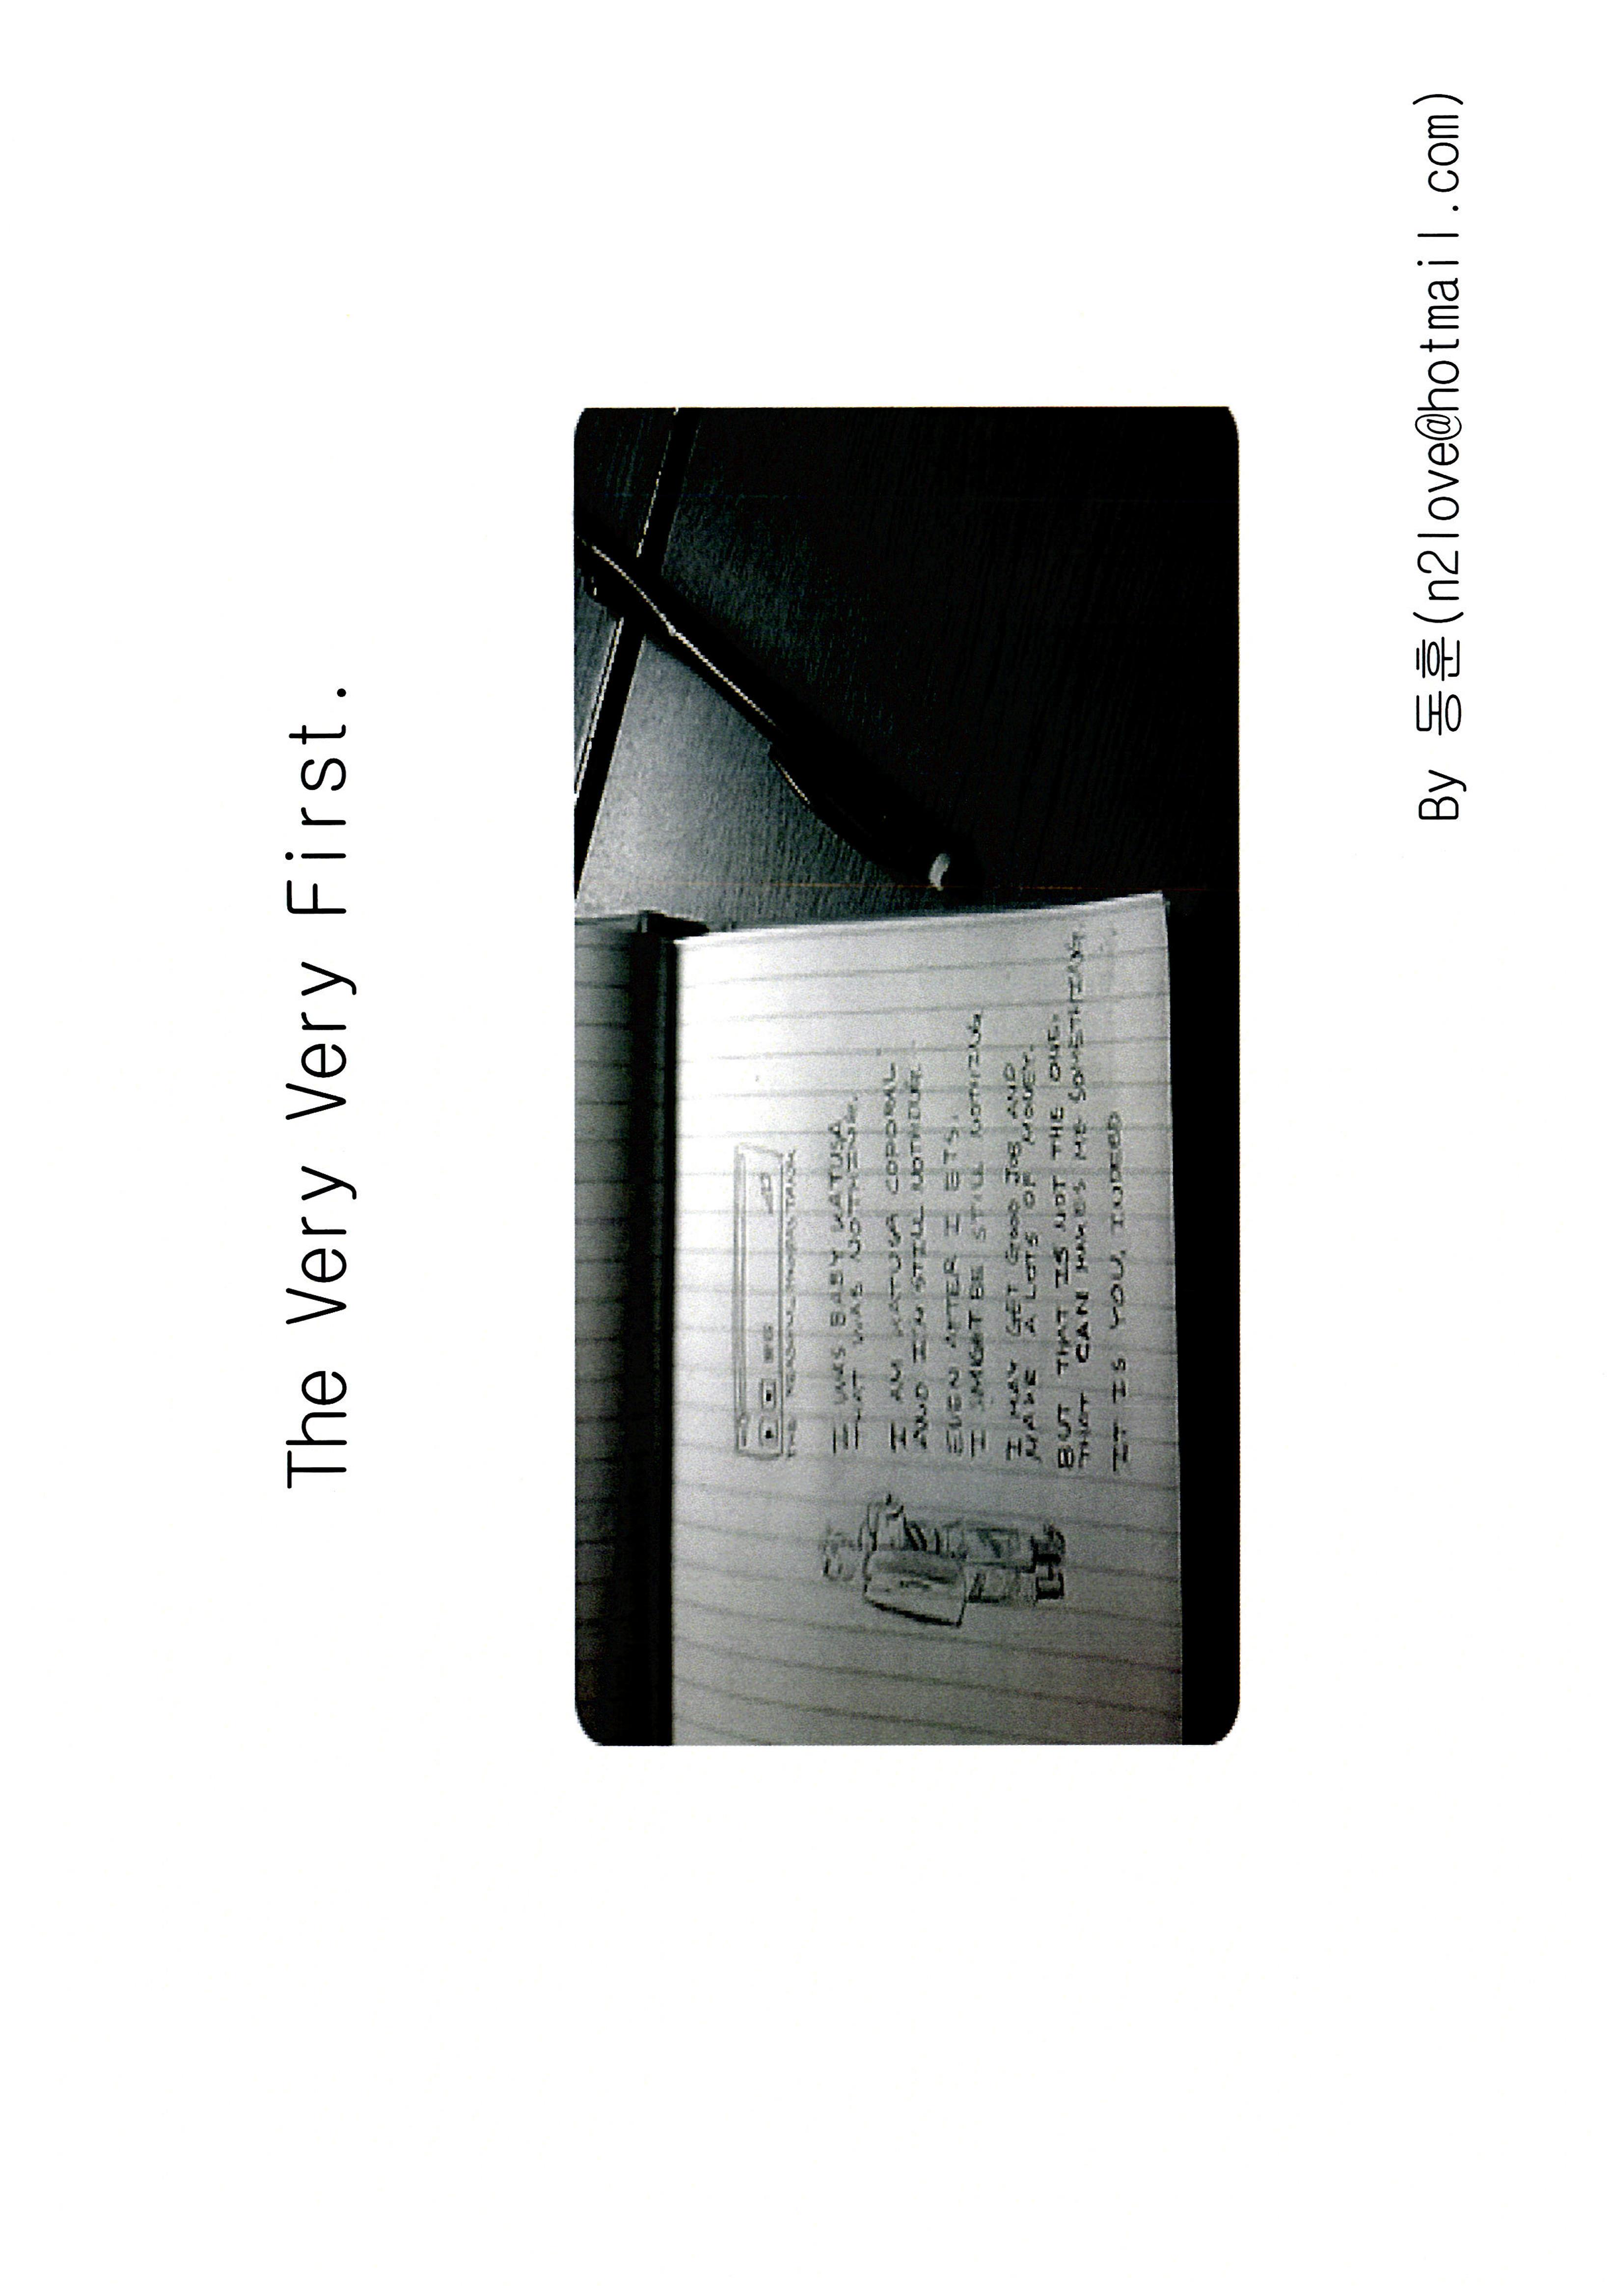 The Very Very First.
I WAS BABY KATUSA,
THAT WAS NOTHING.
I AM KATUSA CORPORAL
AND I'M STILL NOTHING.
EVEN AFTER I ETS,
I MIGHT BE STILL NOTHING
I MAY GET GOOD JOB AND
MAKE A LOTS OF MONEY.
BUT THAT IS NOT THE ONE,
THAT CAN MAKES ME SOMETHING.
IT IS YOU, INDEED
By 동훈(n2love@hotmail.com)